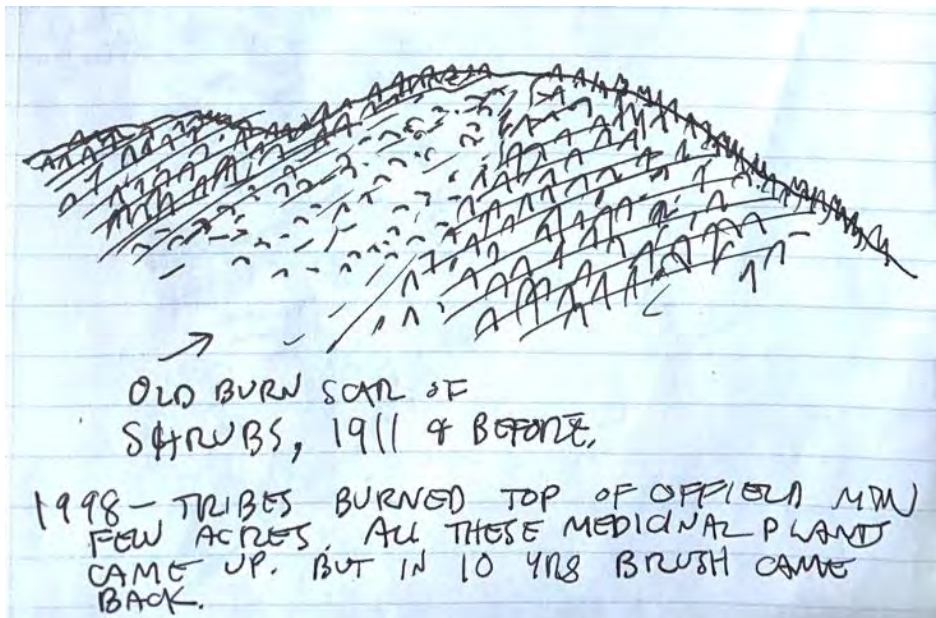 OLD BURN SCAR OF
SHRUBS, 1911 & BEFORE.
1998 - TRIBES BURNED TOP OF OFFIELD MTN
FEW ACRES. ALL THESE MEDICINAL PLANTS
CAME UP. BUT IN 10 YRS BRUSH CAME
BACK.